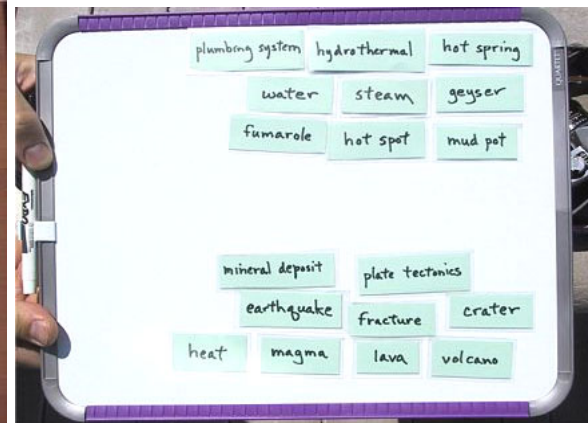 plumbing system hydrothermal hot spring
water steam geyser
fumarole hot spot mud pot
mineral deposit plate tectonics
earthquake fracture crater
heat magma lava volcano
EXPO
QUARTET